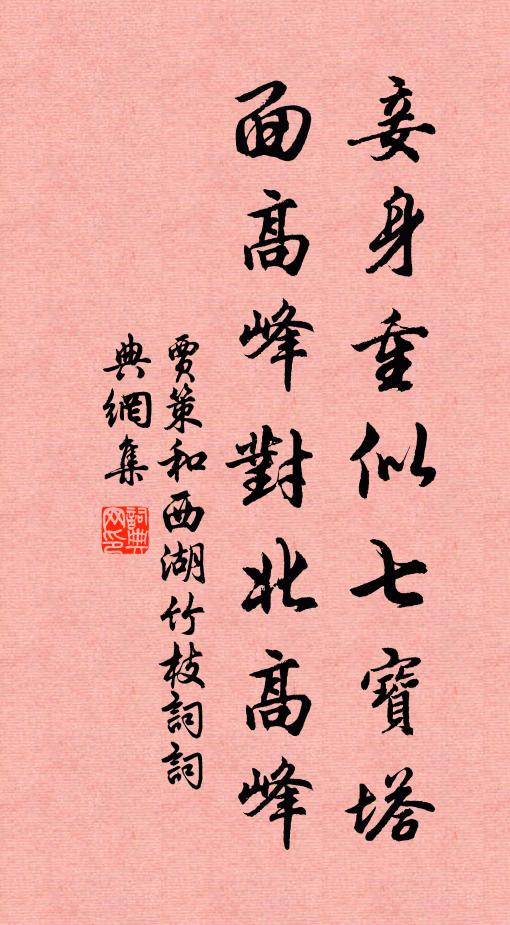 妾身重似七寶塔
面高峰對北高峰
賈策和西湖竹枝詞詞
典網集
詞典
网印